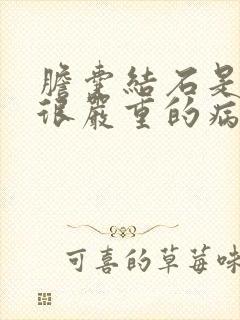 膽囊結石是
很嚴重的病
可喜的草莓味